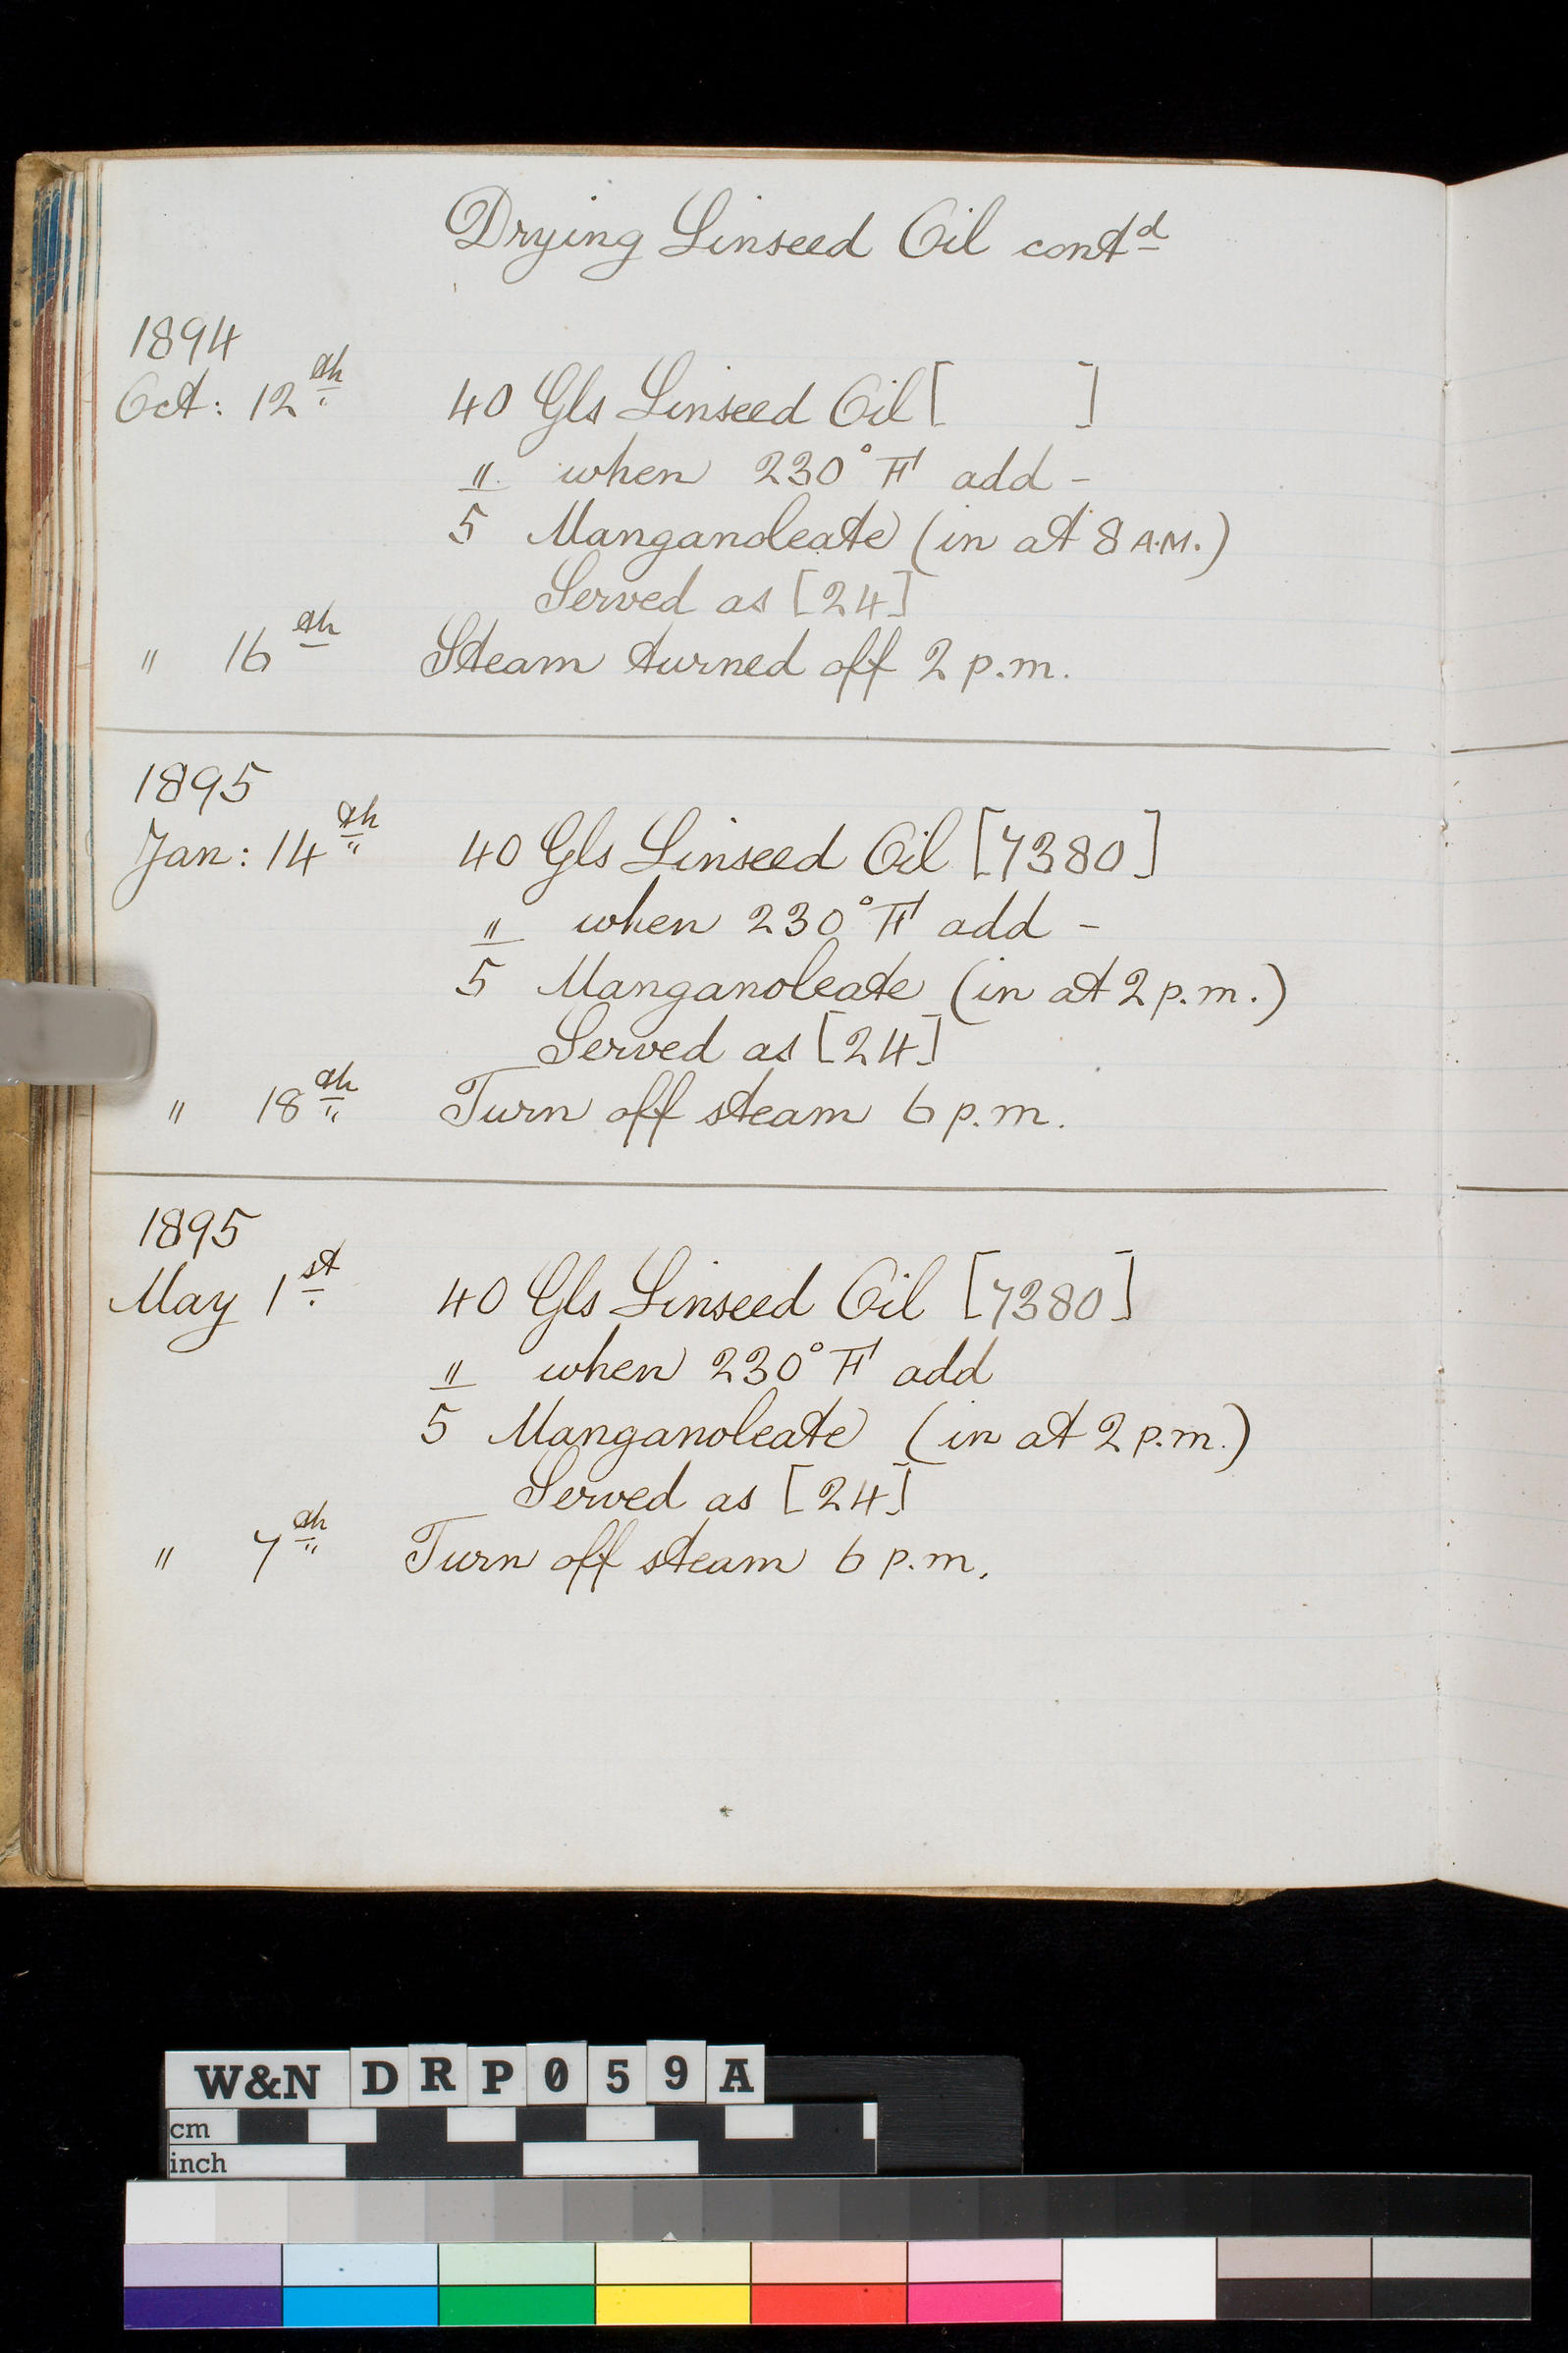 Drying Linseed Oil contd
1894
Oct: 12th 40 Gls Linseed Oil [ ]
" when 230°F add -
5 Manganoleate (in at 8 A.M.)
Served as [24]
" 16th Steam turned off 2 p.m.
1895
Jan: 14th 40 Gls Linseed Oil [7380]
" when 230°F add -
5 Manganoleate (in at 2 p.m.)
Served as [24]
" 18th Turn off steam 6 p.m.
1895
May 1st 40 Gls Linseed Oil [7380]
" when 230°F add
5 Manganoleate (in at 2 p.m.)
Served as [24]
" 7th Turn off steam 6 p.m.
W&N DRP059A
cm
inch